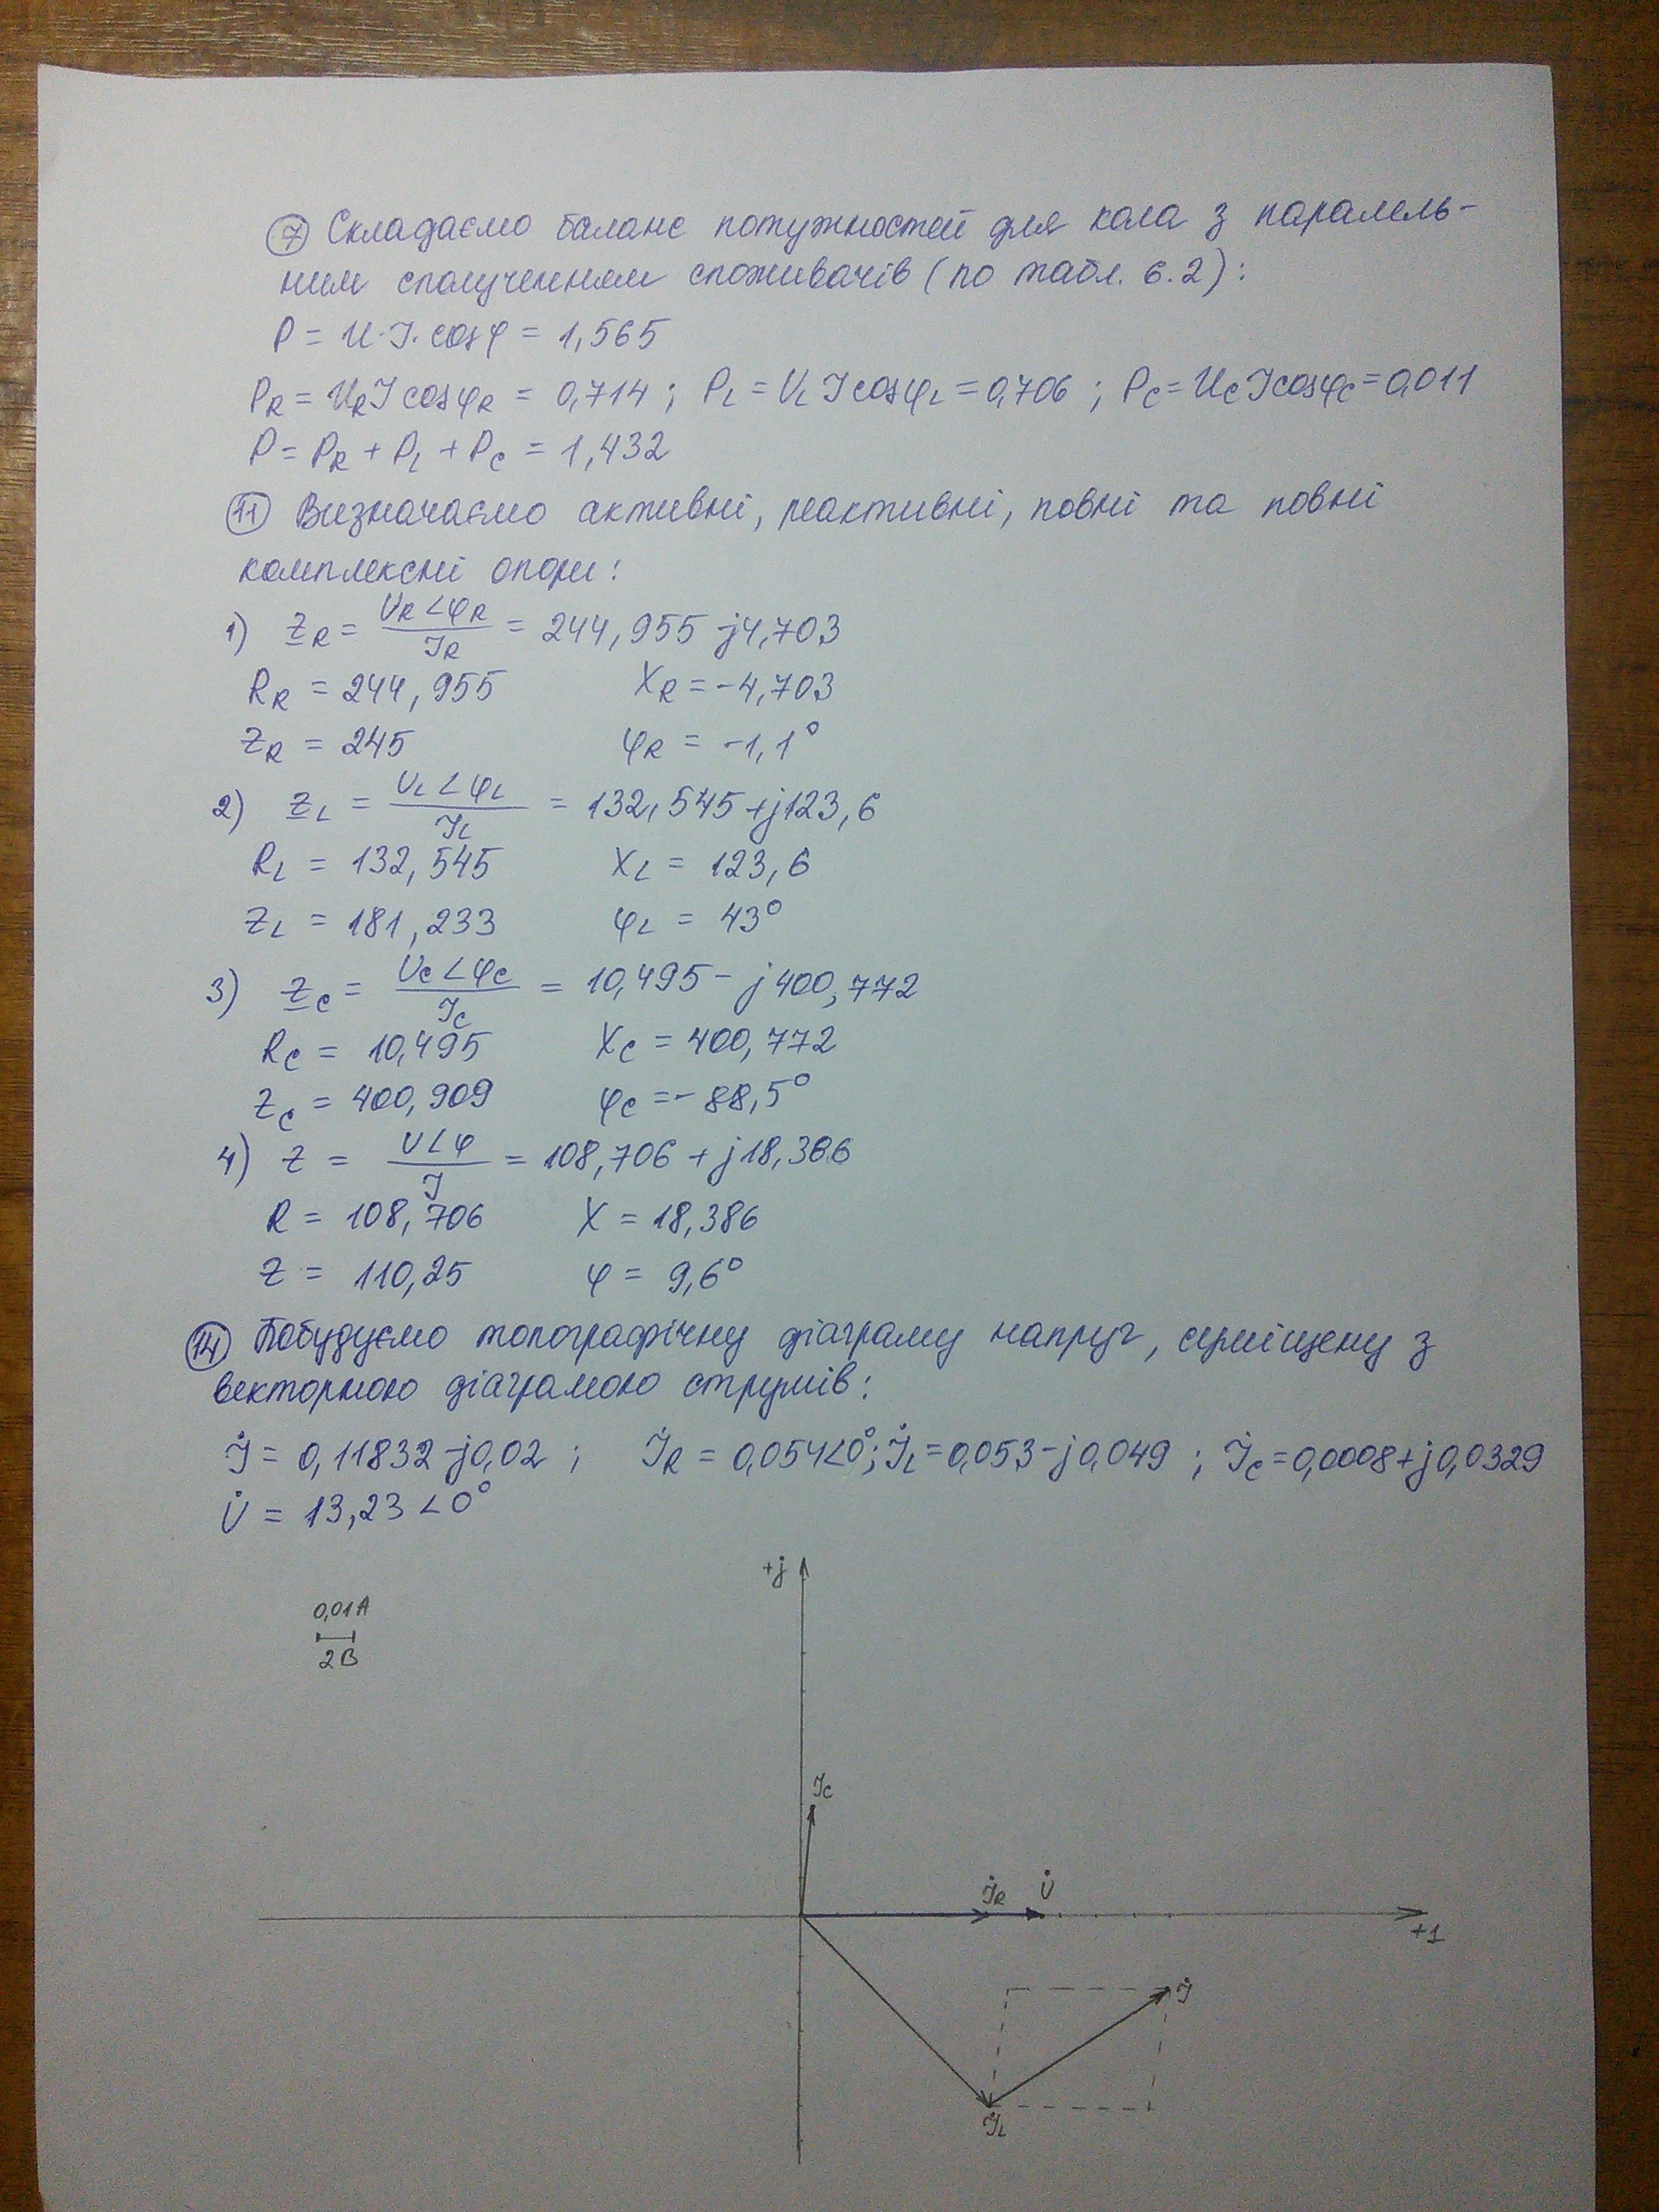 ⑦ Складаємо баланс потужностей для кола з паралель-
ним сполученням споживачів (по табл. 6.2):
P = U·I·cosφ = 1,565
P_R = U_R I cosφ_R = 0,714 ; P_L = U_L I cosφ_L = 0,706 ; P_C = U_C I cosφ_C = 0,011
P = P_R + P_L + P_C = 1,432
⑪ Визначаємо активні, реактивні, повні та повні
комплексні опори:
1) Z_R = U_R∠φ_R / I_R = 244,955 - j4,703
R_R = 244,955 X_R = -4,703
Z_R = 245 φ_R = -1,1°
2) Z_L = U_L∠φ_L / I_L = 132,545 + j123,6
R_L = 132,545 X_L = 123,6
Z_L = 181,233 φ_L = 43°
3) Z_C = U_C∠φ_C / I_C = 10,495 - j400,772
R_C = 10,495 X_C = 400,772
Z_C = 400,909 φ_C = -88,5°
4) Z = U∠φ / I = 108,706 + j18,386
R = 108,706 X = 18,386
Z = 110,25 φ = 9,6°
⑭ Побудуємо топографічну діаграму напруг, суміщену з
векторною діаграмою струмів:
İ = 0,11832 - j0,02 ; İ_R = 0,054∠0° ; İ_L = 0,053 - j0,049 ; İ_C = 0,0008 + j0,0329
U̇ = 13,23∠0°
+j
0,01А
2В
İ_C
İ_R U̇
+1
İ
İ_L